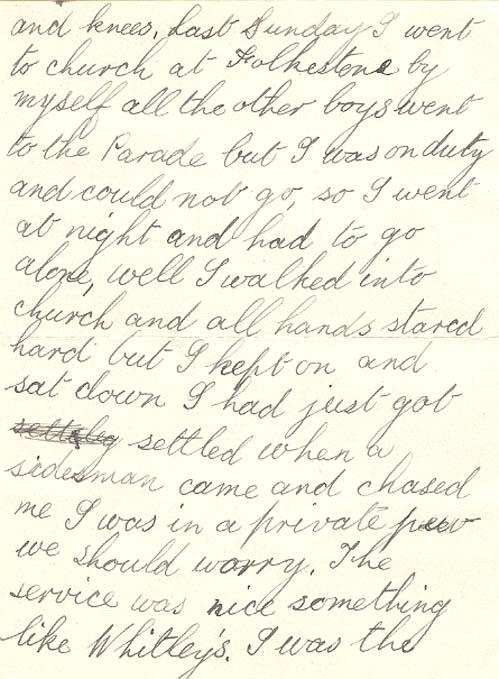 and knees. Last Sunday I went
to church at Folkestone by
myself all the other boys went
to the Parade but I was on duty
and could not go, so I went
at night and had to go
alone, well I walked into
church and all hands stared
hard but I kept on and
sat down I had just got
settled when a
sidesman came and chased
me I was in a private pew
we should worry. The
service was nice something
like Whitley's. I was the